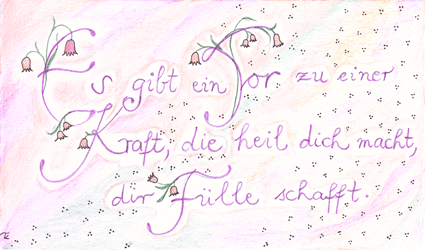 Es gibt ein Tor zu einer
Kraft, die heil dich macht,
dir Fülle schafft.